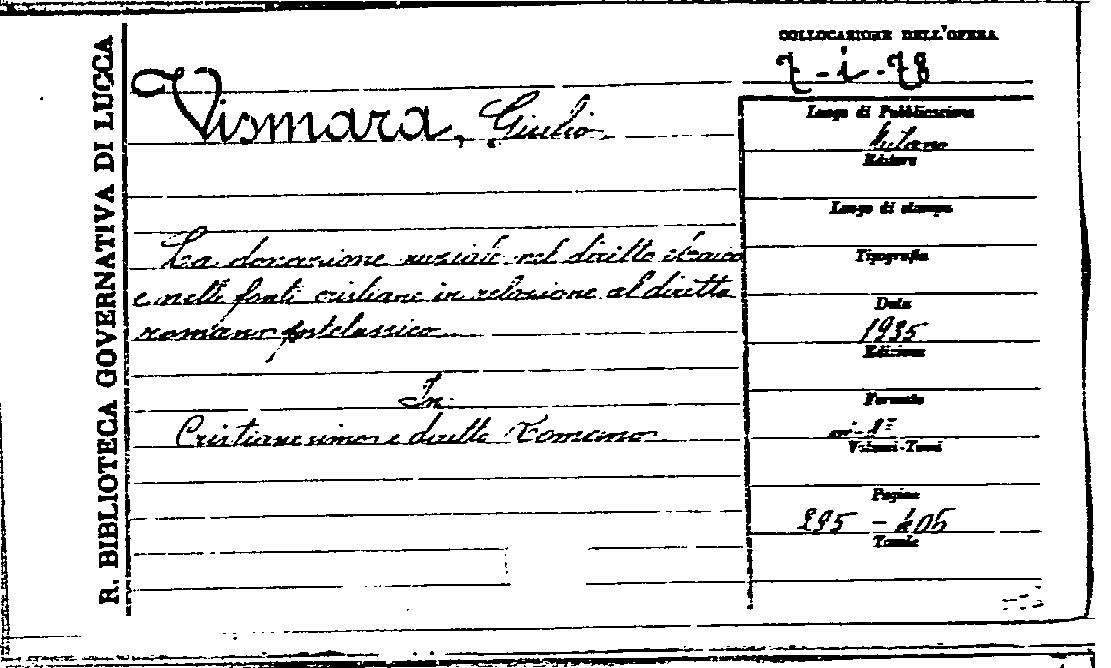 R. BIBLIOTECA GOVERNATIVA DI LUCCA
COLLOCAZIONE DELL'OPERA
7-i-78
Vismara, Giulio.
Luogo di Pubblicazione
Milano
Editore
Luogo di stampa
La donazione nuziale nel diritto ebraico
Tipografia
e nelle fonti cristiane in relazione al diritto
Data
romano postclassico
1935
Edizione
In:
Formato
Cristianesimo e diritto romano
in-8º
Volumi-Tomi
Pagine
295 - 405
Tavole